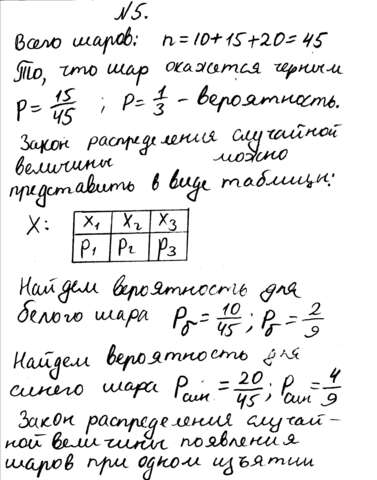 №5.
Всего шаров: n=10+15+20=45
То, что шар окажется черным
P=15/45 ; P=1/3 - вероятность.
Закон распределения случайной
величины можно
представить в виде таблицы:
X: X₁ X₂ X₃
P₁ P₂ P₃
Найдем вероятность для
белого шара Pб=10/45; Pб=2/9
Найдем вероятность для
синего шара Pсин=20/45; Pсин=4/9
Закон распределения случай-
ной величины появления
шаров при одном изъятии